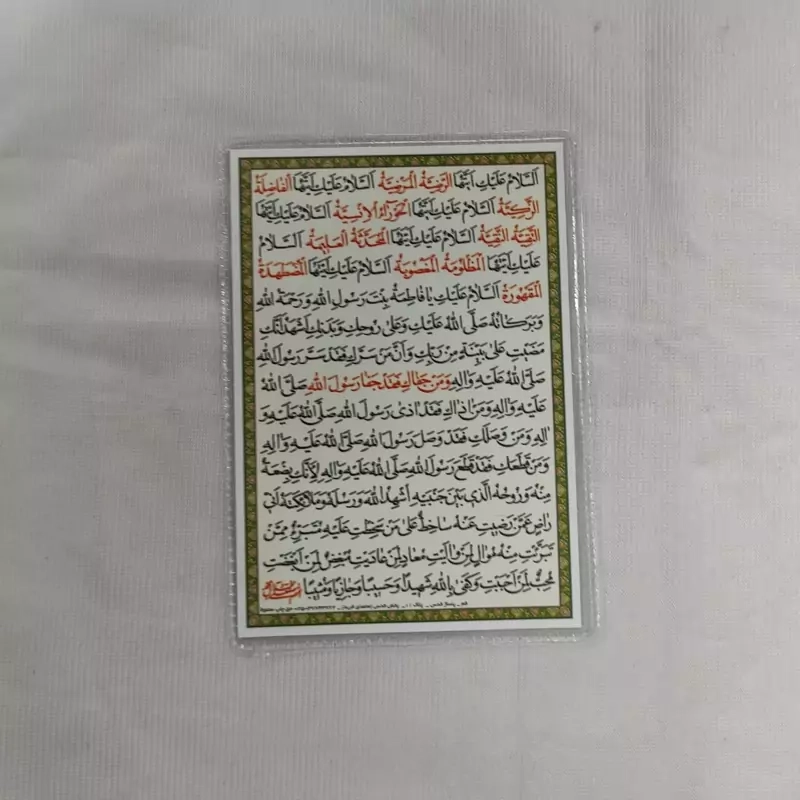 اَلسَّلامُ عَلَيْكِ اَيَّتُهَا الرَّضِيَّةُ الْمَرْضِيَّةُ اَلسَّلامُ عَلَيْكِ اَيَّتُهَا الْفاضِلَةُ
الزَّكِيَّةُ اَلسَّلامُ عَلَيْكِ اَيَّتُهَا الْحَوْراءُ الْاِنْسِيَّةُ اَلسَّلامُ عَلَيْكِ اَيَّتُهَا
التَّقِيَّةُ النَّقِيَّةُ اَلسَّلامُ عَلَيْكِ اَيَّتُهَا الْمُحَدَّثَةُ الْعَليمَةُ اَلسَّلامُ
عَلَيْكِ اَيَّتُهَا الْمَظْلُومَةُ الْمَغْصُوبَةُ اَلسَّلامُ عَلَيْكِ اَيَّتُهَا الْمُضْطَهَدَةُ
الْمَقْهُورَةُ اَلسَّلامُ عَلَيْكِ يا فاطِمَةُ بِنْتَ رَسُولِ اللهِ وَ رَحْمَةُ اللهِ
وَ بَرَكاتُهُ صَلَّى اللهُ عَلَيْكِ وَ عَلى رُوحِكِ وَ بَدَنِكِ اَشْهَدُ اَنَّكِ
مَضَيْتِ عَلى بَيِّنَةٍ مِنْ رَبِّكِ وَ اَنَّ مَنْ سَرَّكِ فَقَدْ سَرَّ رَسُولَ اللهِ
صَلَّى اللهُ عَلَيْهِ وَ الِهِ وَ مَنْ جَفاكِ فَقَدْ جَفا رَسُولَ اللهِ صَلَّى اللهُ
عَلَيْهِ وَ الِهِ وَ مَنْ اذاكِ فَقَدْ اذى رَسُولَ اللهِ صَلَّى اللهُ عَلَيْهِ وَ
الِهِ وَ مَنْ وَصَلَكِ فَقَدْ وَصَلَ رَسُولَ اللهِ صَلَّى اللهُ عَلَيْهِ وَ الِهِ
وَ مَنْ قَطَعَكِ فَقَدْ قَطَعَ رَسُولَ اللهِ صَلَّى اللهُ عَلَيْهِ وَ الِهِ لِاَنَّكِ بِضْعَةٌ
مِنْهُ وَ رُوحُهُ الَّذي بَيْنَ جَنْبَيْهِ اُشْهِدُ اللهَ وَ رُسُلَهُ وَ مَلائِكَتَهُ اَنّي
راضٍ عَمَّنْ رَضِيتِ عَنْهُ ساخِطٌ عَلى مَنْ سَخِطْتِ عَلَيْهِ مُتَبَرِّءٌ مِمَّنْ
تَبَرَّئْتِ مِنْهُ مُوالٍ لِمَنْ والَيْتِ مُعادٍ لِمَنْ عادَيْتِ مُبْغِضٌ لِمَنْ اَبْغَضْتِ
مُحِبٌّ لِمَنْ اَحْبَبْتِ وَ كَفى بِاللهِ شَهيدًا وَ حَسيبًا وَ جازِيًا وَ مُثيبًا